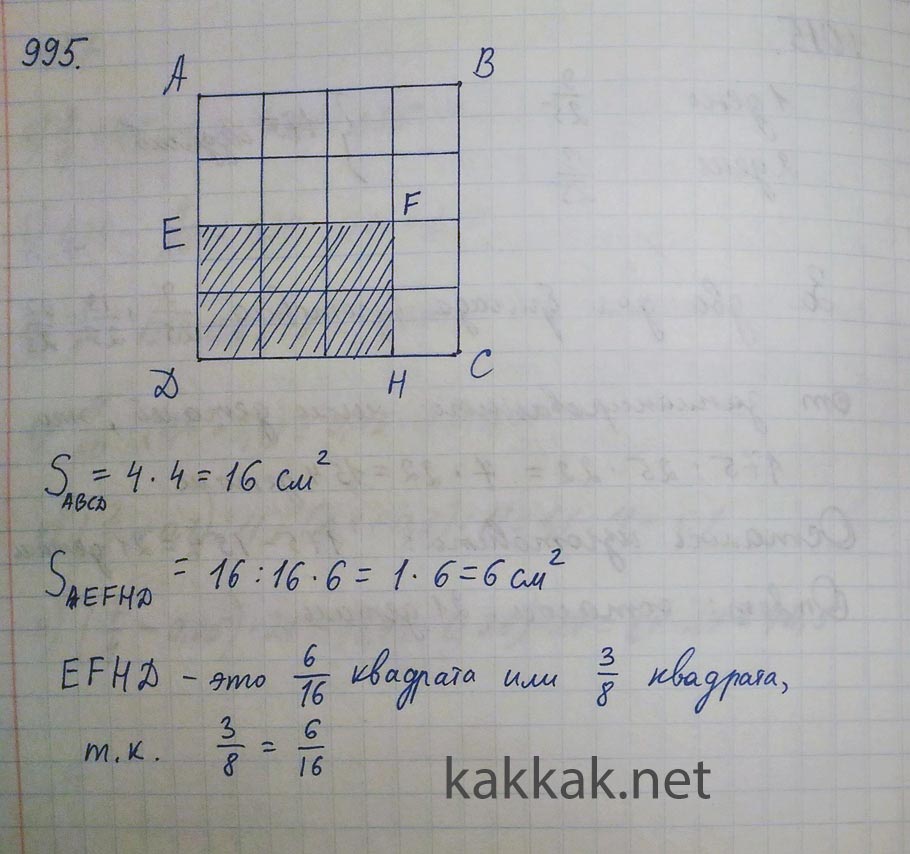 995.
A B
E F
D H C
S_ABCD = 4 · 4 = 16 см²
S_AEFHD = 16 : 16 · 6 = 1 · 6 = 6 см²
EFHD - это 6/16 квадрата или 3/8 квадрата,
т.к. 3/8 = 6/16
kakkak.net